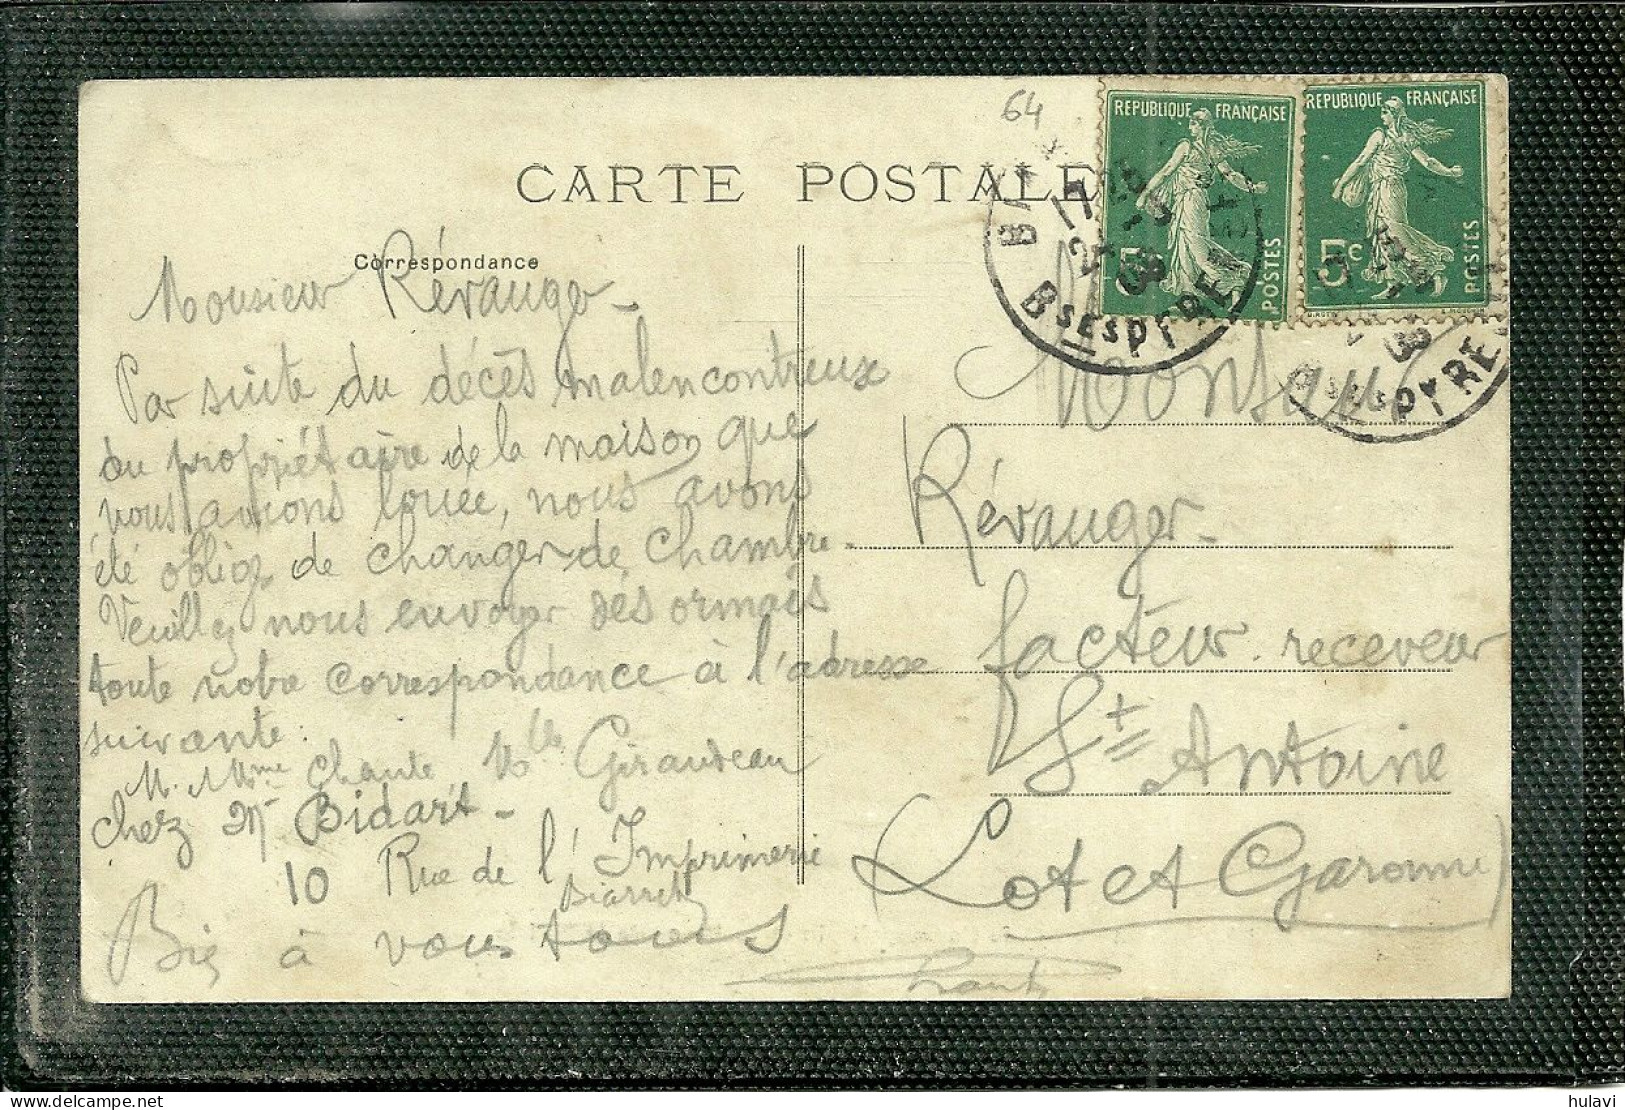 64
CARTE POSTALE
REPUBLIQUE FRANÇAISE
5c
POSTES
REPUBLIQUE FRANÇAISE
5c
POSTES
BSES PYRE
BSES PYRE
Correspondance
Monsieur Révauger -
Par suite du décès malencontreux
du propriétaire de la maison que
nous avions louée, nous avons
été obligé de changer de chambre.
Veuillez nous envoyer dés ormais
toute notre correspondance à l'adresse
suivante:
M. Mme Chante Mlle Giraudeau
chez Mr Bidart -
10 Rue de l'Imprimerie
Biarritz
Bien à vous tous
Monsieur
Révauger -
facteur receveur
St Antoine
(Lot et Garonne)